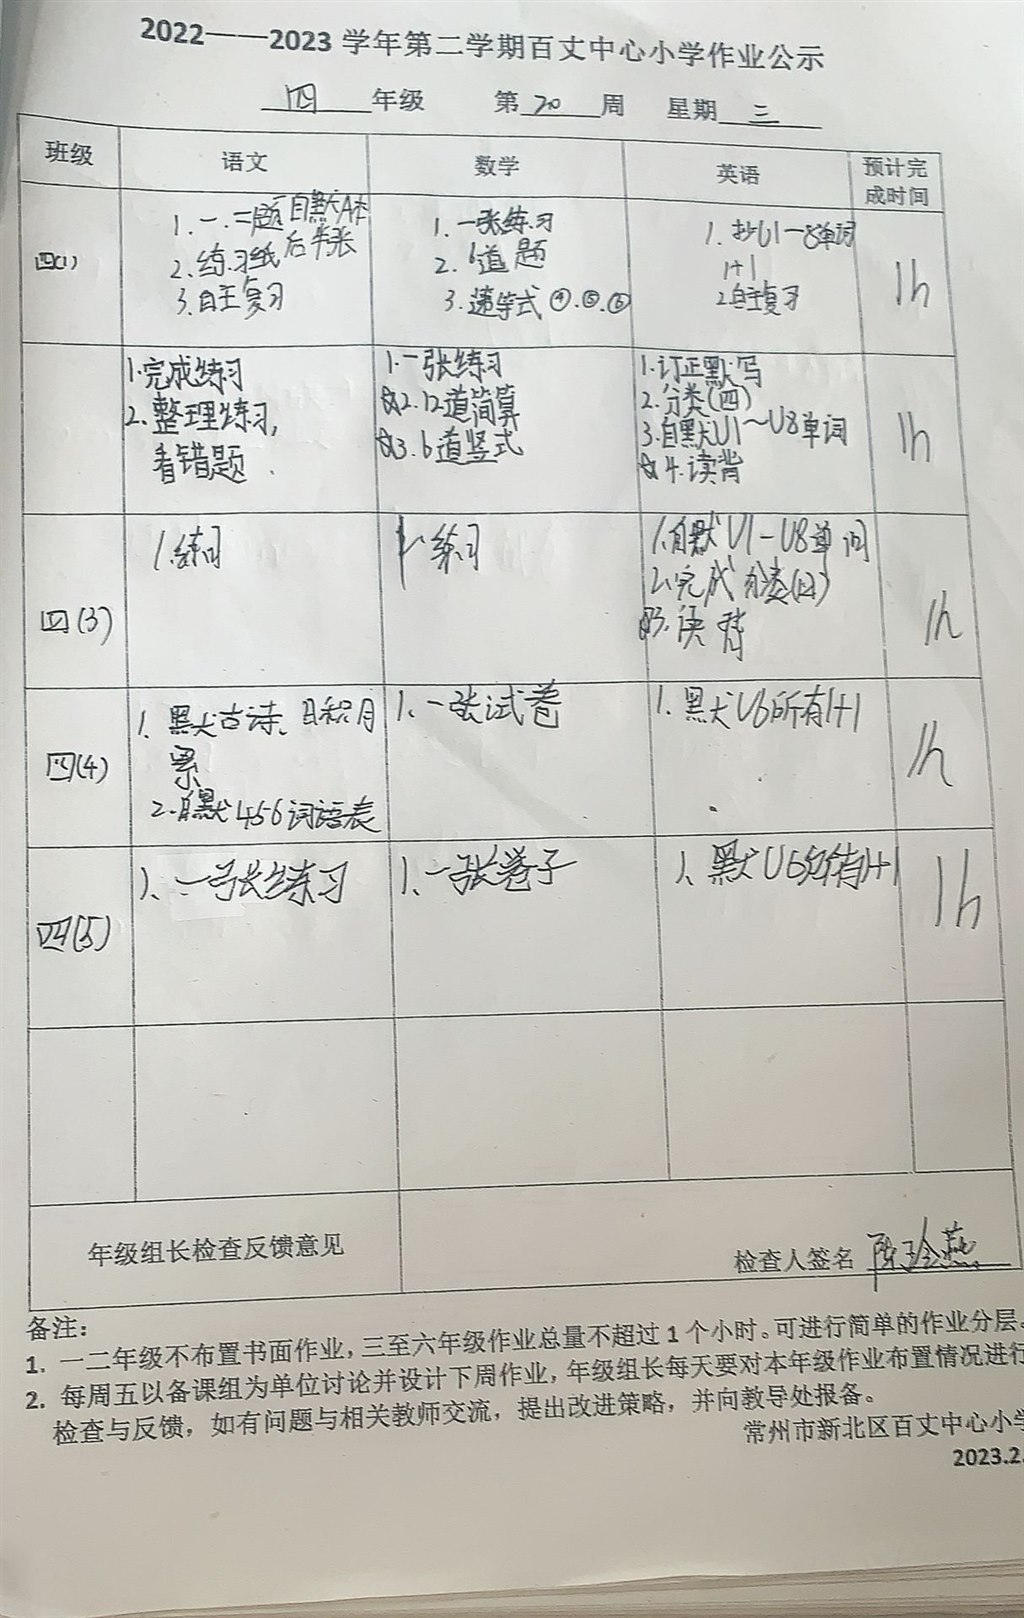 2022——2023 学年第二学期百丈中心小学作业公示
四 年级 第 20 周 星期 三
班级 语文 数学 英语 预计完
成时间
四(1)
1. 一.二题 自默A本
2. 练习纸后半张
3. 自主复习
1. 一张练习
2. 6道题
3. 递等式④.⑤.⑥
1. 抄U1-8单词
1+1
2.自主复习
1h
1.完成练习
2.整理练习,
看错题.
1.一张练习
☆2.12道简算
☆3.6道竖式
1.订正默写
2.分类(四)
3.自默U1~U8单词
☆4.读背
1h
四(3)
1.练习
1.练习
1.自默U1-U8单词
2.完成分类(四)
☆3.读背
1h
四(4)
1. 默古诗、日积月
累
2.自默456词语表
1.一张试卷
1. 默U6所有1+1
1h
四(5)
1、一张练习
1、一张卷子
1、默U6所有1+1
1h
年级组长检查反馈意见
检查人签名 陈玲燕
备注：
1. 一二年级不布置书面作业，三至六年级作业总量不超过 1 个小时。可进行简单的作业分层。
2. 每周五以备课组为单位讨论并设计下周作业，年级组长每天要对本年级作业布置情况进行
检查与反馈，如有问题与相关教师交流，提出改进策略，并向教导处报备。
常州市新北区百丈中心小学
2023.2.